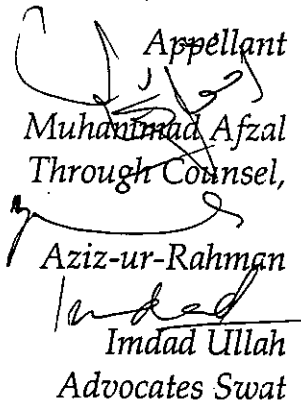 Appellant
Muhammad Afzal
Through Counsel,
Aziz-ur-Rahman
Imdad
Imdad Ullah
Advocates Swat